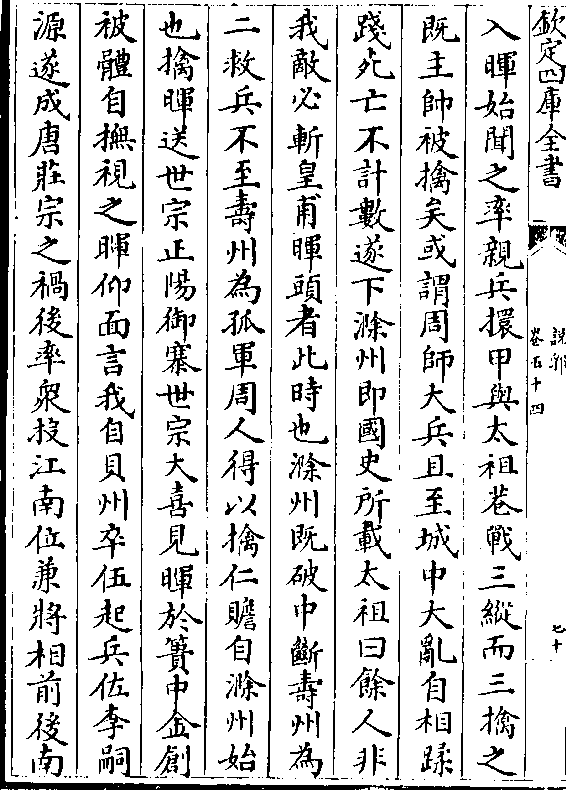 欽定四庫全書
說郛
卷五十四
七十
入暉始聞之率親兵擐甲與太祖巷戰三縱而三擒之
既主帥被擒矣或謂周師大兵且至城中大亂自相蹂
踐死亡不計數遂下滁州即國史所載太祖曰餘人非
我敵必斬皇甫暉頭者此時也滁州既破中斷壽州為
二救兵不至壽州為孤軍周人得以擒仁贍自滁州始
也擒暉送世宗正陽御寨世宗大喜見暉於簀中金創
被體自撫視之暉仰面言我自貝州卒伍起兵佐李嗣
源遂成唐莊宗之禍後率衆投江南位兼將相前後南